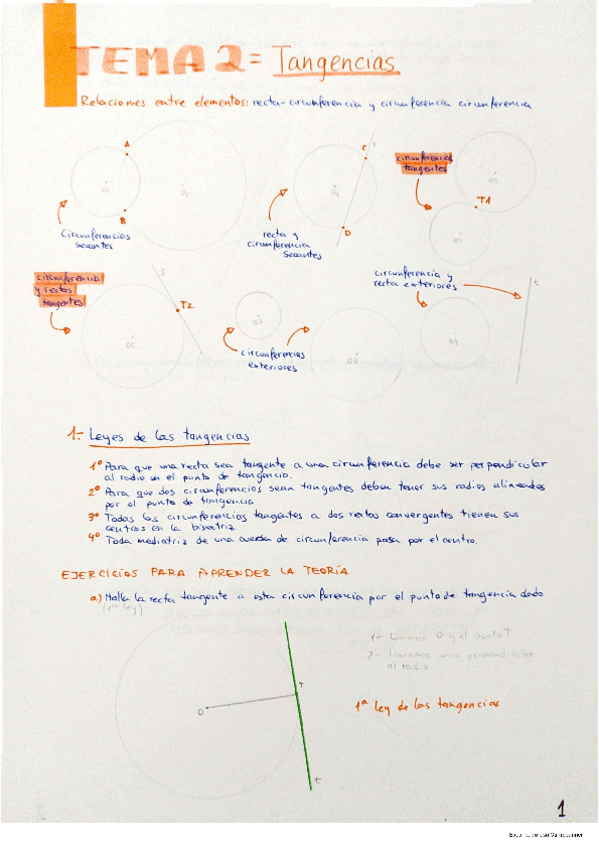 TEMA 2 = Tangencias
Relaciones entre elementos: recta-circunferencia y circunferencia circunferencia
A
B
O1
Circunferencias
secantes
C
r
D
O4
recta y
circunferencia
secantes
circunferencias
tangentes
O5
T1
circunferencia
y rectas
tangentes
s
T2
O6
circunferencias
exteriores
O8
circunferencia y
recta exteriores
O9
t
1.- Leyes de las tangencias
1º Para que una recta sea tangente a una circunferencia debe ser perpendicular
al radio en el punto de tangencia.
2º Para que dos circunferencias sean tangentes deben tener sus radios alineados
por el punto de tangencia
3º Todas las circunferencias tangentes a dos rectas convergentes tienen sus
centros en la bisectriz.
4º Toda mediatriz de una cuerda de circunferencia pasa por el centro.
EJERCICIOS PARA APRENDER LA TEORÍA
a) Halla la recta tangente a esta circunferencia por el punto de tangencia dado
(1ª ley)
1- Unimos O y el punto T
2- Hacemos una perpendicular
al radio
O
T
t
1ª ley de las tangencias
1